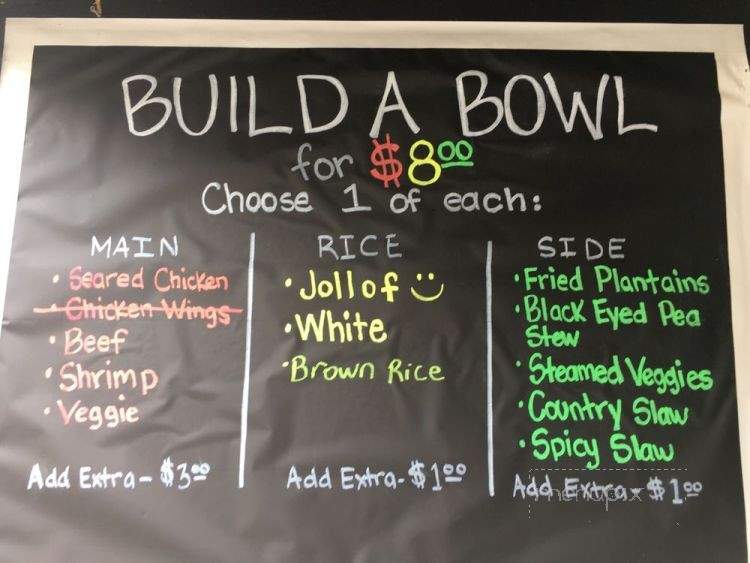 BUILD A BOWL
for $8.00
Choose 1 of each:
MAIN
• Seared Chicken
• Chicken Wings
• Beef
• Shrimp
• Veggie
Add Extra - $3.00
RICE
• Jollof :)
• White
• Brown Rice
Add Extra - $1.00
SIDE
• Fried Plantains
• Black Eyed Pea
Stew
• Steamed Veggies
• Country Slaw
• Spicy Slaw
Add Extra - $1.00
menupix